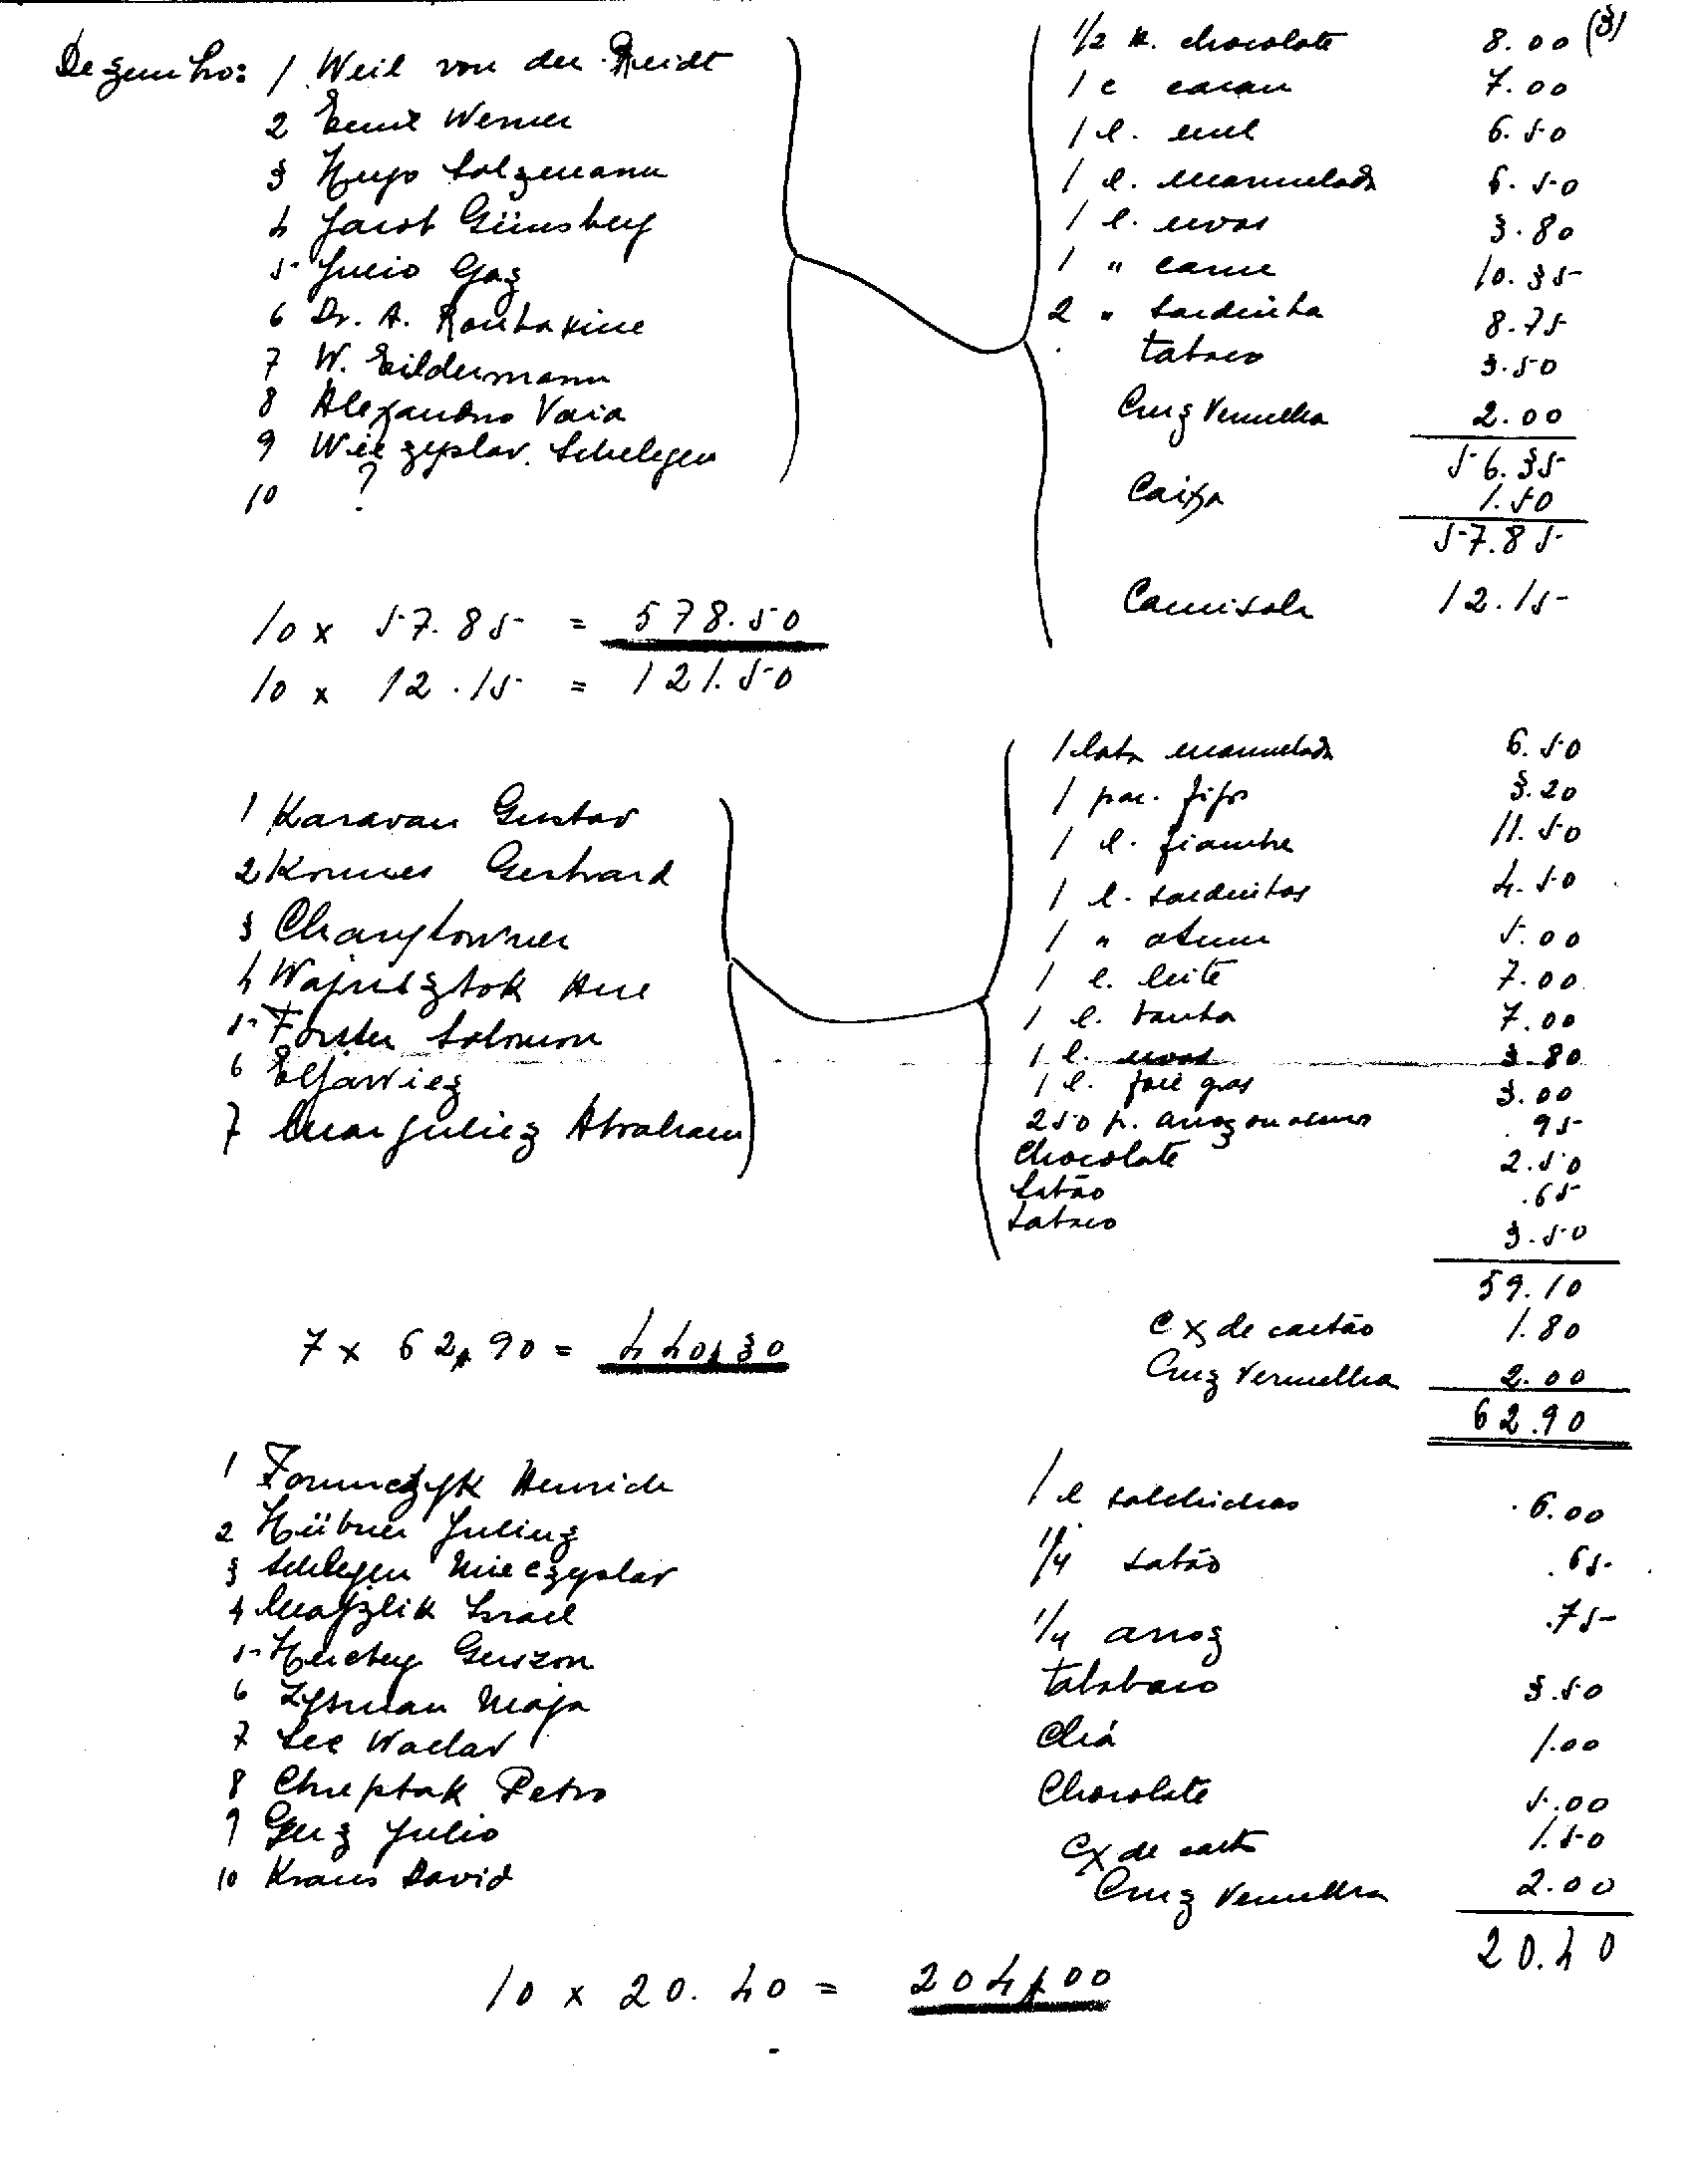 Dezembro: 1 Weil von der Reidt
2 Ernst Werner
3 Hugo Salzmann
4 Jacob Günsberg
5 Julio Gaz
6 Dr. A. Roubakine
7 W. Eildermann
8 Alexandro Vaia
9 Wiezyslav. Schelegen
10 ?
1/2 k. chocolate 8.00 (3)
1 c cacau 7.00
1 l. mel 6.50
1 l. marmelada 6.50
1 l. uvas 3.80
1 " carne 10.35
2 " sardinha 8.75
tabaco 3.50
Cruz Vermelha 2.00
56.35
Caixa 1.50
57.85
Camisola 12.15
10 x 57.85 = 578.50
10 x 12.15 = 121.50
1 Karavan Gustav
2 Gerhard
3
4 Wajnsztok
5 Forster Salomon
6
7 Abraham
1 lata marmelada 6.50
1 pac. figos 3.20
1 l. fiambre 11.50
1 l. sardinhas 4.50
1 " atum 5.00
1 l. leite 7.00
1 l. banha 7.00
1 l. uvas 3.80
1 l. foie gras 3.00
250 gr. arroz ou .95
Chocolate 2.50
Sabão .65
tabaco 3.50
59.10
Cx de cartão 1.80
Cruz Vermelha 2.00
62.90
7 x 62,90 = 440,30
1 Henrich
2 Hübner Juliuz
3 Schlegen Mieczyslav
4 Israel
5 Gerszon
6 Zysman Maja
7 Waclav
8 Chreptak Petro
9 Guz Julio
10 Kraus David
1 l salchichas 6.00
1/4 sabão .65
1/4 arroz .75
tababaco 3.50
Chá 1.00
Chocolate 5.00
Cx de cartão 1.50
Cruz Vermelha 2.00
20.40
10 x 20.40 = 204,00